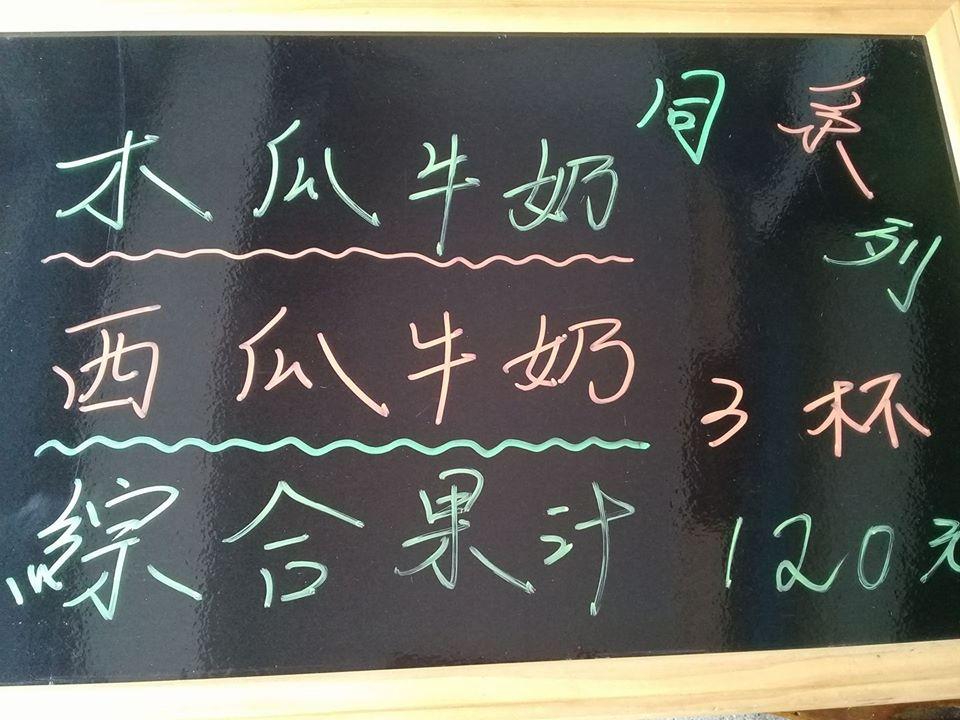 木瓜牛奶
西瓜牛奶
綜合果汁
同系列
3杯
120元